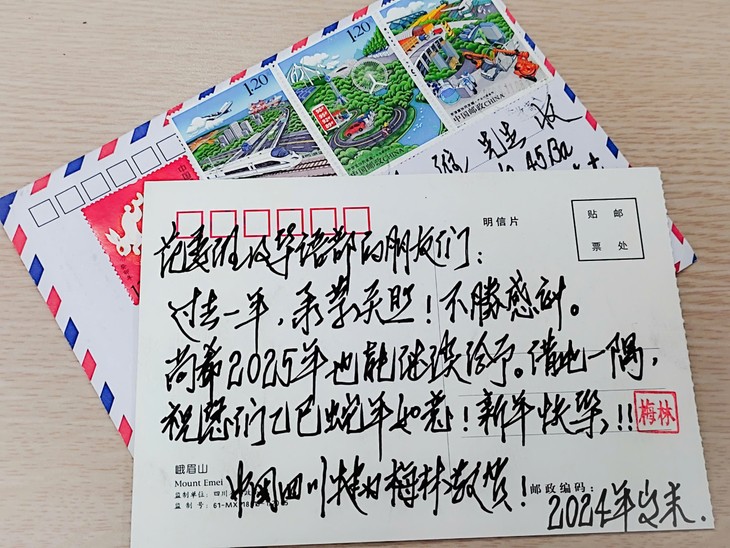 1.20
1.20
中国邮政CHINA
先生 收
45Ba
明信片
贴 邮
票 处
范及华语部的朋友们：
过去一年，承蒙关照！不勝感谢。
尚希2025年也能继续给予。借此一隅，
祝您们乙巳蛇年如意！新年快樂！！
梅林
峨眉山
Mount Emei
监制单位：四川
监 制 号：61-MX
中国四川犍为梅林敬贺！
邮政编码：
2024年岁末.